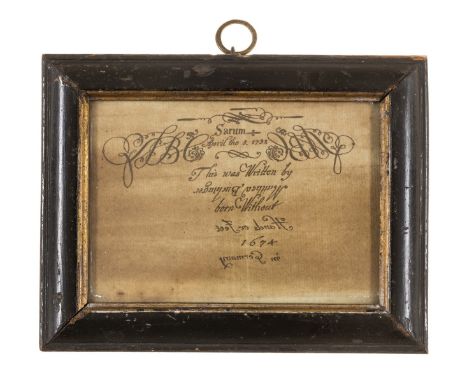 ABC Sarum
April the 3. 1733
This was Written by
Matthew Buchinger
born Without
Hands or Feet
1674
in Germany